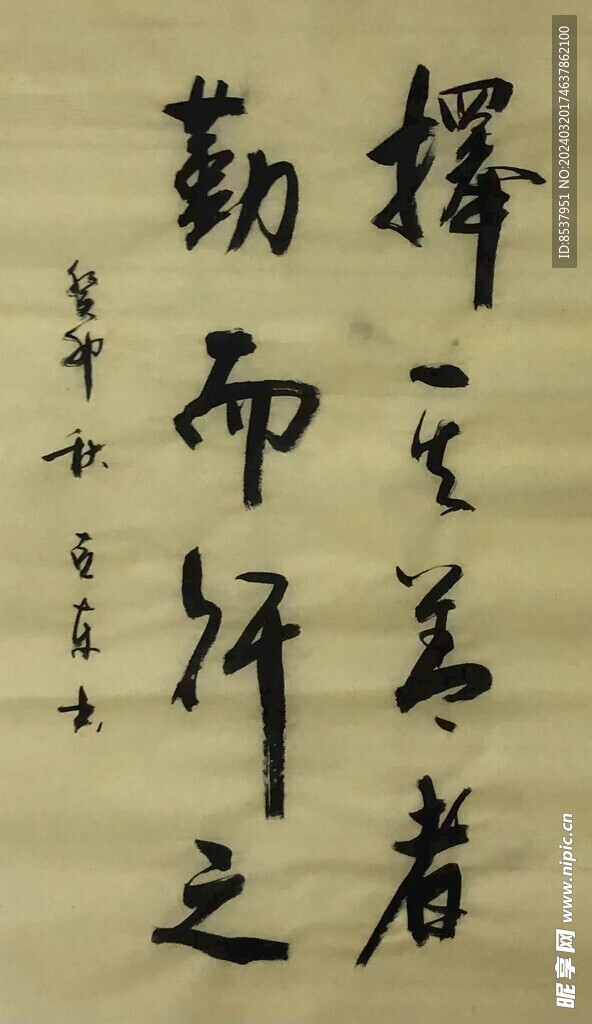 擇其善者
勤而行之
癸卯秋 东书
ID:8537951 NO:20240320174637862100
昵享网 www.nipic.cn